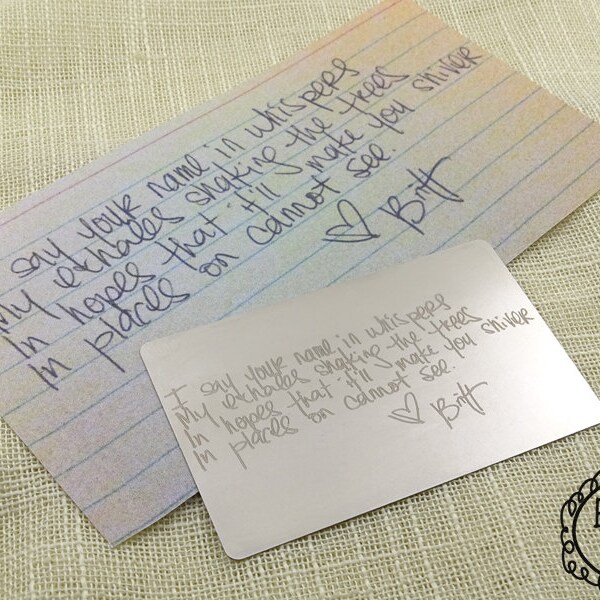 say your name in whispers
My exhales shaking the trees
In hopes that it'll make you shiver
In places on cannot see.
♡ Britt
I say your name in whispers
My exhales shaking the trees
In hopes that it'll make you shiver
In places on cannot see.
♡ Britt